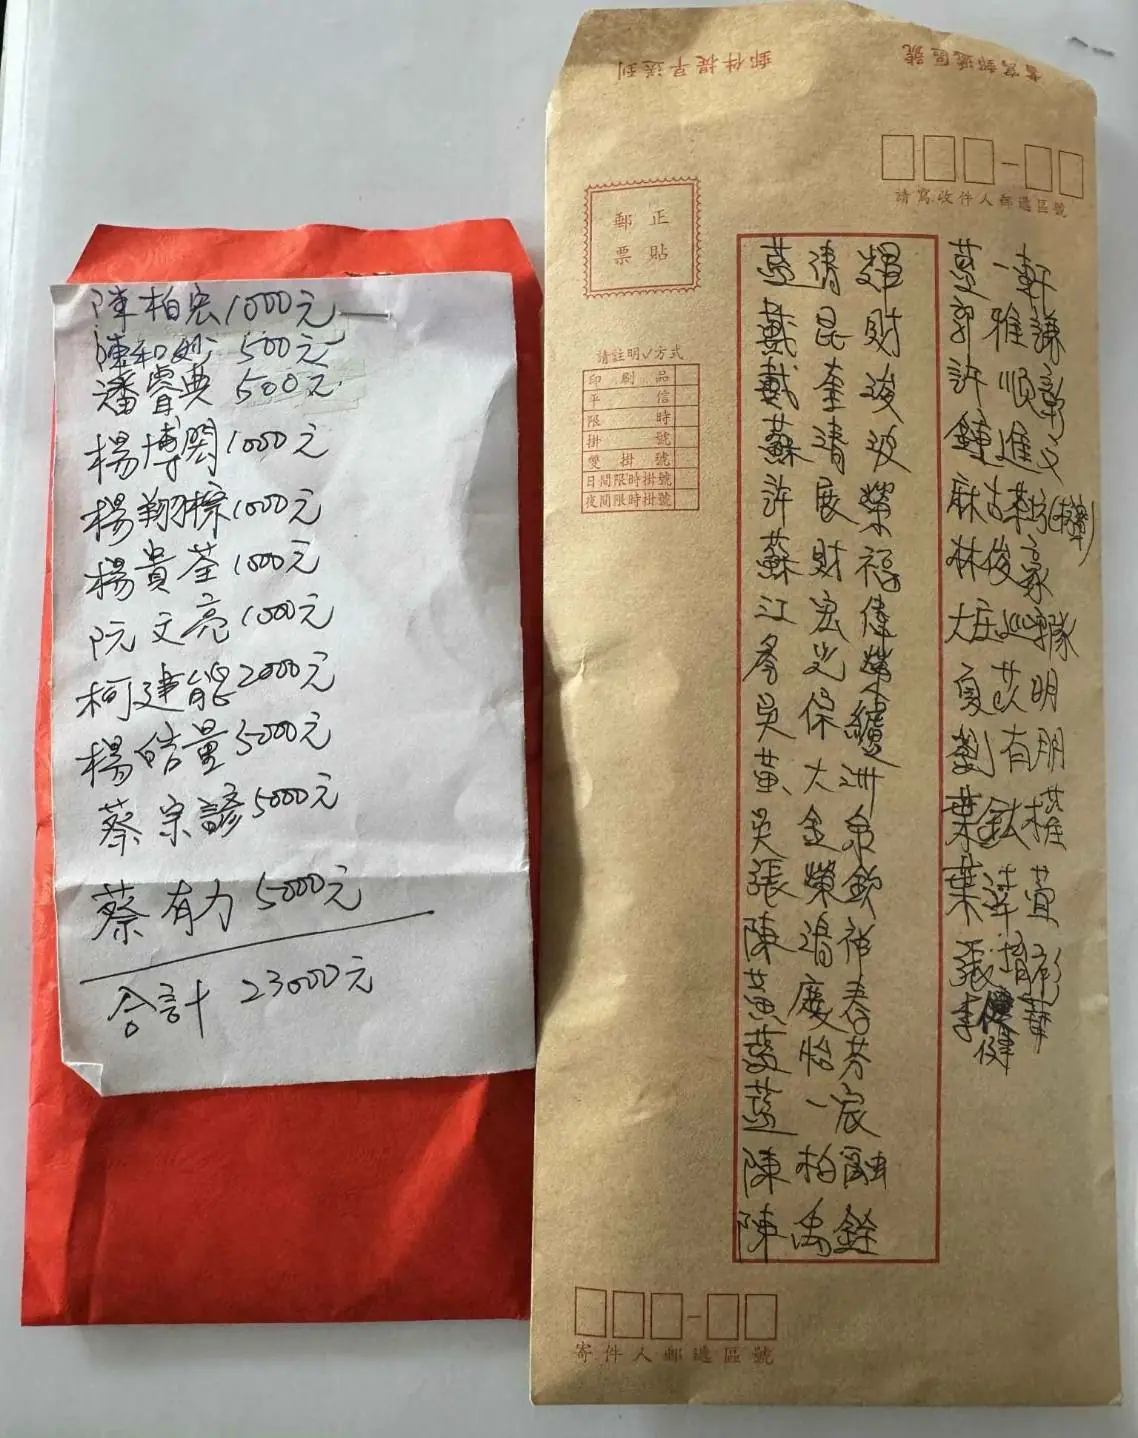 陳柏宏1000元
陳和妙 500元
潘睿典 500元
楊博閎1000元
楊翔檡1000元
楊貴荃1000元
阮文亮1000元
柯建能2000元
楊皓量5000元
蔡宗諺5000元
蔡有力 5000元
合計 23000元
郵件提早送到
書寫郵遞區號
請寫收件人郵遞區號
正貼
郵票
請註明✓方式
印刷品
平信
限時
掛號
雙掛號
日間限時掛號
夜間限時掛號
藍清輝
戴昆財
戴奎浚
蘇清波
許展榮
蘇財福
江宏偉
李光榮
吳保續
黃大洲
吳金泉
張榮欽
陳鴻裕
黃慶春
藍怡芬
藍一宸
陳柏融
陳禹銓
藍一軒
郭雅謙
許順彰
鍾進文
麻吉
林俊豪
大庄巡守隊
夏苡明
劉有朋
葉鈥權
葉萱
張堉彬
李健華
健
寄件人郵遞區號